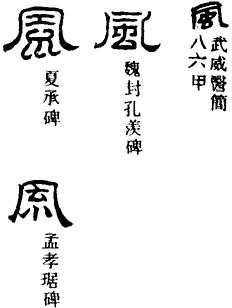 風
武威醫簡
八六甲
風
魏封孔羨碑
風
夏承碑
風
孟孝琚碑